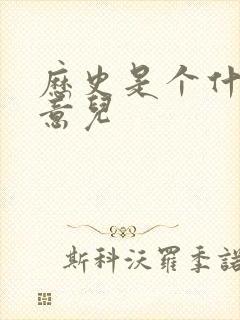 歷史是个什
意兒
斯科沃羅季諾